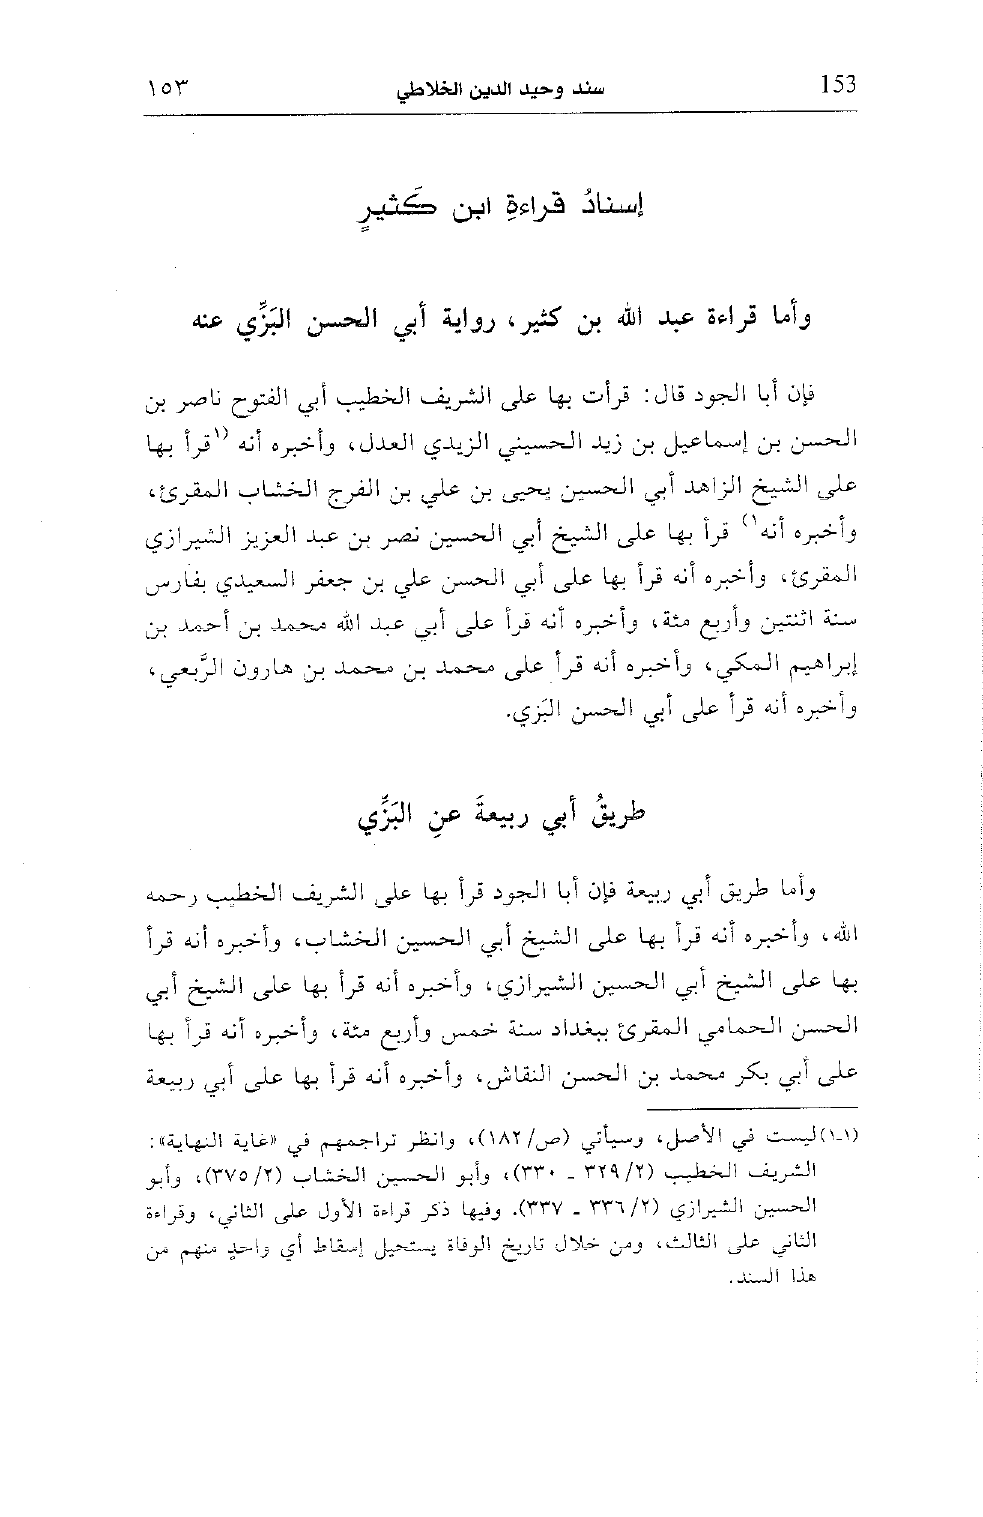 153 سند وحيد الدين الخلاطي ١٥٣
إسنادُ قراءةِ ابن كَثيرٍ
وأما قراءة عبد الله بن كثير، رواية أبي الحسن البَزِّي عنه
فإن أبا الجود قال: قرأت بها على الشريف الخطيب أبي الفتوح ناصر بن
الحسن بن إسماعيل بن زيد الحسيني الزيدي العدل، وأخبره أنه (١قرأ بها
على الشيخ الزاهد أبي الحسين يحيى بن علي بن الفرج الخشاب المقرئ،
وأخبره أنه١) قرأ بها على الشيخ أبي الحسين نصر بن عبد العزيز الشيرازي
المقرئ، وأخبره أنه قرأ بها على أبي الحسن علي بن جعفر السعيدي بفارس
سنة اثنتين وأربع مئة، وأخبره أنه قرأ على أبي عبد الله محمد بن أحمد بن
إبراهيم المكي، وأخبره أنه قرأ على محمد بن محمد بن هارون الرَّبعي،
وأخبره أنه قرأ على أبي الحسن البَزي.
طريقُ أبي ربيعةَ عنِ البَزِّي
وأما طريق أبي ربيعة فإن أبا الجود قرأ بها على الشريف الخطيب رحمه
الله، وأخبره أنه قرأ بها على الشيخ أبي الحسين الخشاب، وأخبره أنه قرأ
بها على الشيخ أبي الحسين الشيرازي، وأخبره أنه قرأ بها على الشيخ أبي
الحسن الحمامي المقرئ ببغداد سنة خمس وأربع مئة، وأخبره أنه قرأ بها
على أبي بكر محمد بن الحسن النقاش، وأخبره أنه قرأ بها على أبي ربيعة
(١-١) ليست في الأصل، وسيأتي (ص/١٨٢)، وانظر تراجمهم في «غاية النهاية»:
الشريف الخطيب (٢/ ٣٢٩ - ٣٣٠)، وأبو الحسين الخشاب (٢/ ٣٧٥)، وأبو
الحسين الشيرازي (٢/ ٣٣٦ - ٣٣٧). وفيها ذكر قراءة الأول على الثاني، وقراءة
الثاني على الثالث، ومن خلال تاريخ الوفاة يستحيل إسقاط أي واحدٍ منهم من
هذا السند.